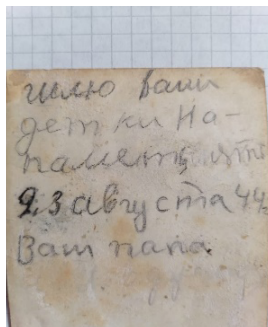 шлю вам
детки На-
память
23 августа 44
Ваш папа.